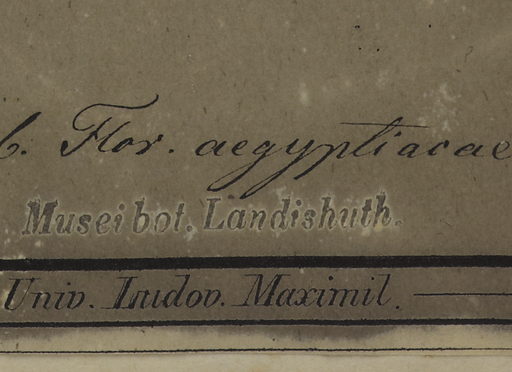 b. Flor. aegyptiacae
Musei bot. Landishuth.
Univ. Ludov. Maximil.